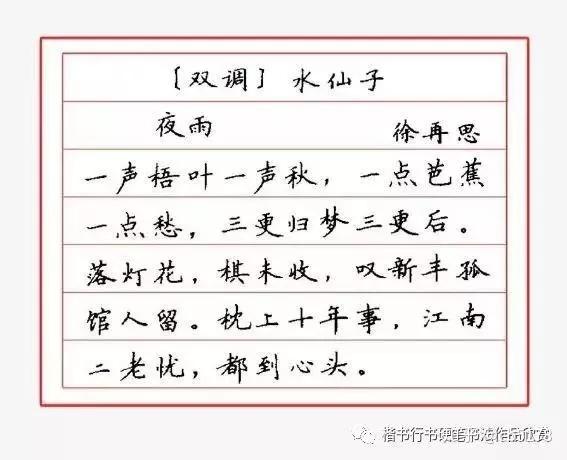 〔双调〕 水仙子
夜雨 徐再思
一声梧叶一声秋，一点芭蕉
一点愁，三更归梦三更后。
落灯花，棋未收，叹新丰孤
馆人留。枕上十年事，江南
二老忧，都到心头。
楷书行书硬笔书法作品欣赏